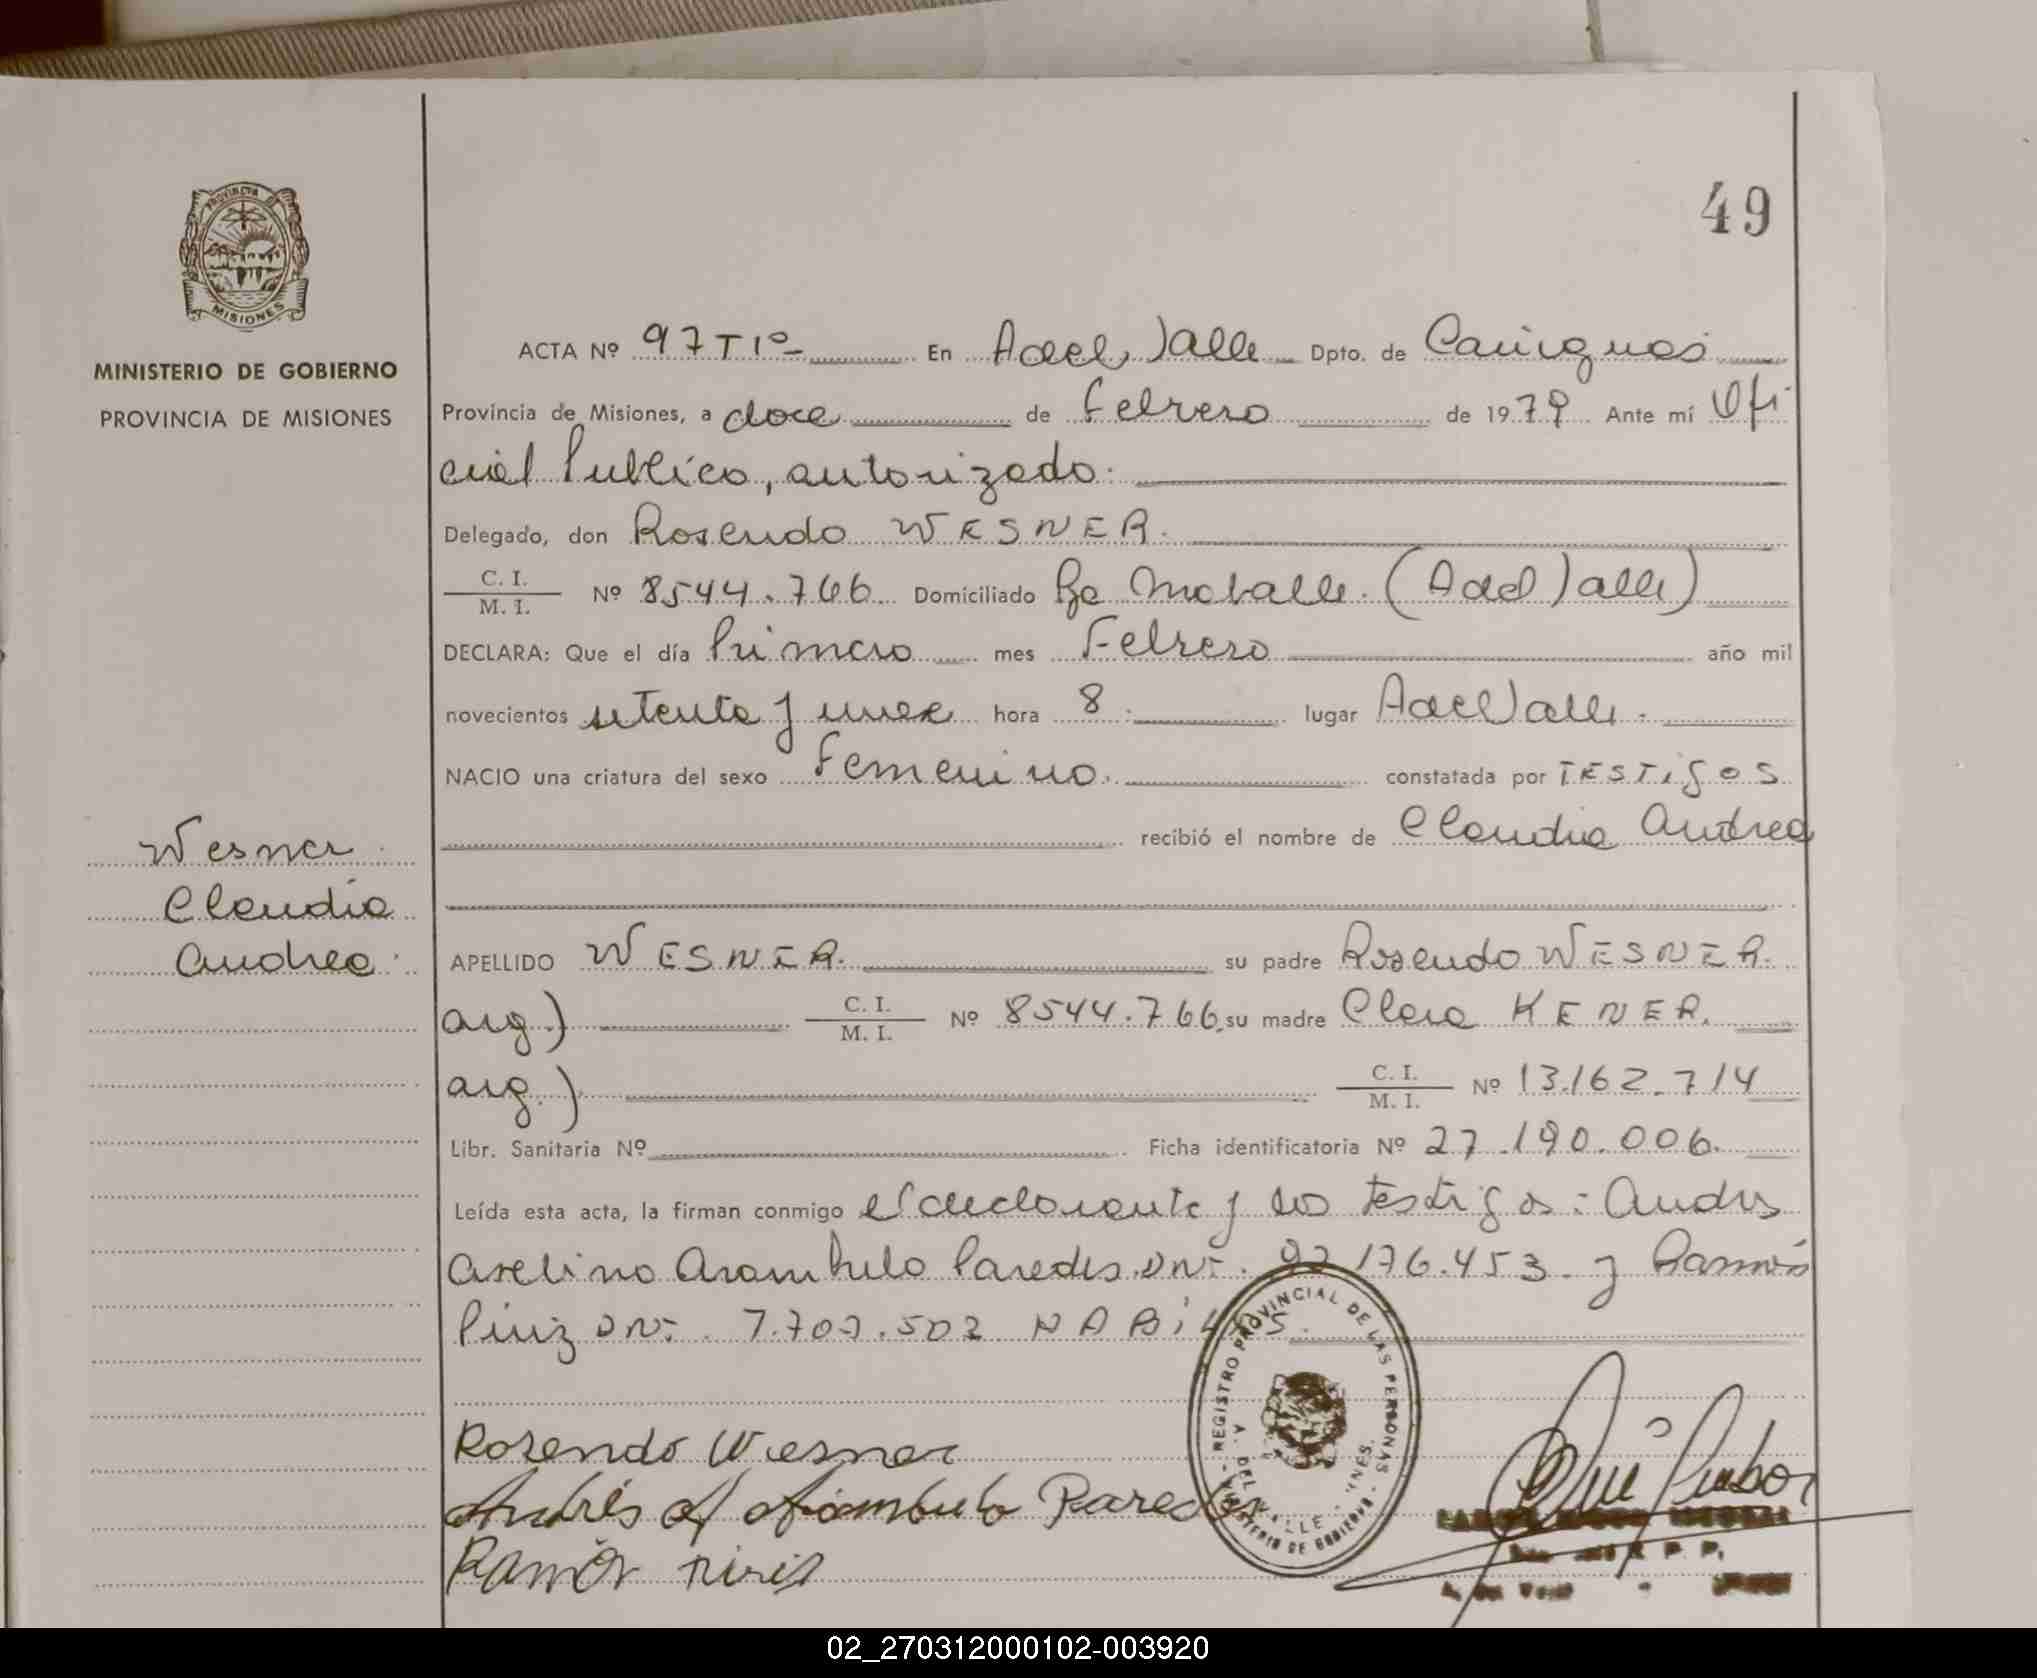 49
PROVINCIA DE
MISIONES
MINISTERIO DE GOBIERNO
PROVINCIA DE MISIONES
ACTA Nº 97 T 1º En A del Valle Dpto. de Cainguas
Provincia de Misiones, a doce de Febrero de 1979 Ante mí Ofi
cial Publico, autorizado.
Delegado, don Rosendo WESNER.
C. I.
M. I. Nº 8544.766 Domiciliado (A del Valle)
DECLARA: Que el día Primero mes Febrero año mil
novecientos setenta y nueve hora 8 lugar A del Valle.
NACIO una criatura del sexo Femenino. constatada por TESTigos
recibió el nombre de Claudia Andrea
Wesner
Claudia
Andrea
APELLIDO WESNER. su padre Rosendo WESNER.
arg.) C. I.
M. I. Nº 8544.766 su madre Clara KENER.
arg.) C. I.
M. I. Nº 13.162.714
Libr. Sanitaria Nº Ficha identificatoria Nº 27.190.006.
Leída esta acta, la firman conmigo el declarante y los testigos: Andres
Avelino Arambulo Paredes DNI. 92 176.453. y Ramón
DNI. HABiLES.
Rosendo Wesner
Andrés A Arambulo Paredes
Ramón
REGISTRO PROVINCIAL DE LAS PERSONAS
MINISTERIO DE GOBIERNO
A. DEL VALLE
02_270312000102-003920